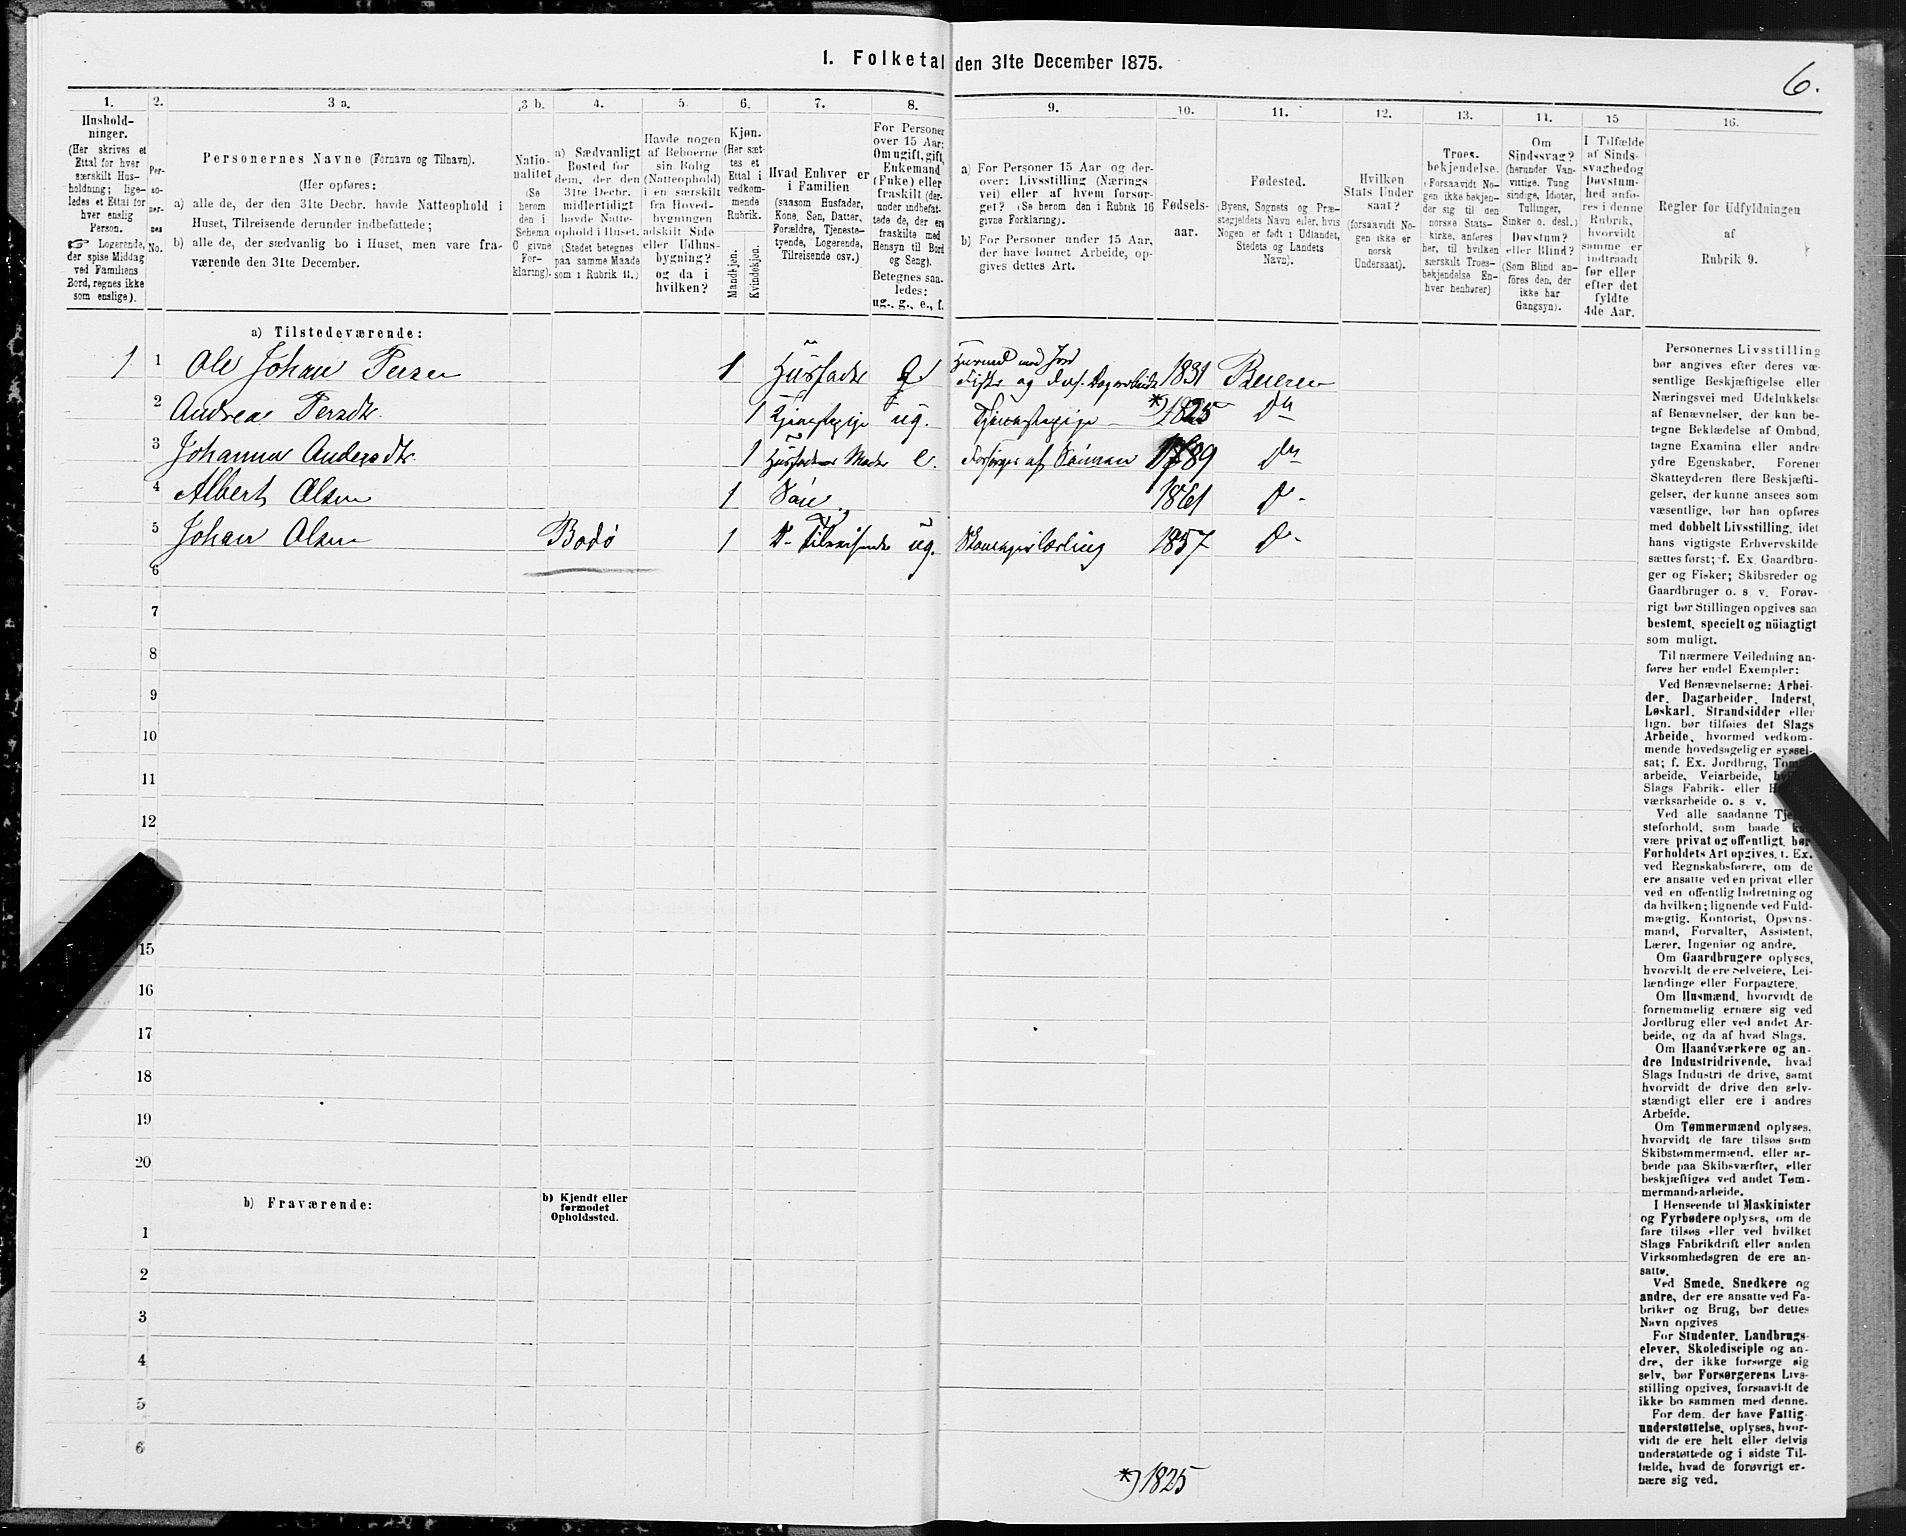 I. Folketal den 31te December 1875.
6.
1. 2. 3 a. 3 b. 4. 5. 6. 7. 8. 9. 10. 11. 12. 13. 14. 15 16.
Hushold-
ninger.
(Her skrives et
Ettal for hver
særskilt Hus-
holdning; lige-
ledes et Ettal for
hver enslig
Person.
☞ Logerende,
der spise Middag
ved Familiens
Bord, regnes ikke
som enslige).
Per-
so-
ner-
nes
No.
Personernes Navne (Fornavn og Tilnavn).
(Her opføres:
a) alle de, der den 31te Decbr. havde Natteophold i
Huset, Tilreisende derunder indbefattede;
b) alle de, der sædvanlig bo i Huset, men vare fra-
værende den 31te December.
Natio-
nalitet
(Se
herom
den i
Schema
O givne
For-
klaring).
a) Sædvanligt
Bosted for
dem, der den
31te Decbr.
midlertidigt
havde Natte-
ophold i Huset.
(Stedet betegnes
paa samme Maade
som i Rubrik 11.)
Havde nogen
af Beboerne
sin Bolig
(Natteophold)
i en særskilt
fra Hoved-
bygningen
adskilt Side
eller Udhus-
bygning?
og da i
hvilken?
Kjøn.
(Her sæt-
tes et
Ettal i
vedkom-
mende
Rubrik.
Mandkjøn.
Kvindekjøn.
Hvad Enhver er
i Familien
(saasom Husfader,
Kone, Søn, Datter,
Forældre, Tjeneste-
tyende, Logerende,
Tilreisende osv.)
For Personer
over 15 Aar:
Om ugift, gift,
Enkemand
(Enke) eller
fraskilt (der-
under indbefat-
tede de, der ere
fraskilte med
Hensyn til Bord
og Seng).
Betegnes saa-
ledes:
ug., g., e., f.
a) For Personer 15 Aar og der-
over: Livsstilling (Nærings
vei) eller af hvem forsør-
get? (Se herom den i Rubrik 16
givne Forklaring).
b) For Personer under 15 Aar,
der have lønnet Arbeide, op-
gives dettes Art.
Fødsels-
aar.
Fødested.
(Byens, Sognets og Præ-
stegjeldets Navn eller, hvis
Nogen er født i Udlandet,
Stedets og Landets
Navn).
Hvilken
Stats Under
saat?
(forsaavidt No-
gen ikke er
norsk
Undersaat).
Troes-
bekjendelse.
(Forsaavidt No-
gen ikke bekjen-
der sig til den
norske Stats-
kirke, anføres
her, til hvilken
særskilt Troes-
bekjendelse En-
hver henhører)
Om
Sindssvag?
(herunder Van-
vittige, Tung
sindige, Idioter,
Tullinger,
Sinker o. desl.)
Døvstum?
eller Blind?
(Som Blind an-
föres den, der
ikke har
Gangsyn).
I Tilfælde
af Sinds-
svaghed og
Døvstum-
hed anfø-
res i denne
Rubrik,
hvorvidt
samme er
indtraadt
før eller
efter det
fyldte
4de Aar.
Regler før Udfyldningen
af
Rubrik 9.
a) Tilstedeværende:
1 1 Ole Johan Persen 1 Husfader g Husmd med Jord
Fisker og 1831 Beieren
2 Andrea Persdtr. 1 Tjenestepige ug. Tjenestepige *) 1825 Do
3 Johanna Andersdtr. 1 Husfaderens Moder e. Forsørges af Sönnen 1789 Do
4 Albert Olsen 1 Sön 1861 Do
5 Johan Olsen Bodö 1 Do Tilreisende ug. lærling 1857 Do
6
7
8
9
10
11
12
15
16
17
18
19
20
b) Fraværende:
b) Kjendt eller
formodet
Opholdssted.
1
2
3
4
5
6
*) 1825
Personernes Livsstilling
bør angives efter deres væ
sentlige Beskjæftigelse eller
Næringsvei med Udelukkelse
af Benævnelser, der kun be-
tegne Beklædelse af Ombud,
tagne Examina eller andre
ydre Egenskaber. Forener
Skatteyderen flere Beskjæfti-
gelser, der kunne ansees som
væsentlige, bør han opføres
med dobbelt Livsstilling, idet
hans vigtigste Erhvervskilde
sættes først; f. Ex. Gaardbru-
ger og Fisker; Skibsreder og
Gaardbruger o. s. v. Forøv-
rigt bør Stillingen opgives saa
bestemt, specielt og nöiagtigt
som muligt.
Til nærmere Veiledning an-
føres her endel Exempler:
Ved Benævnelserne: Arbei-
der, Dagarbeider, Inderst,
Løskarl, Strandsidder eller
lign. bør tilføies det Slags
Arbeide, hvormed vedkom-
mende hovedsagelig er syssel-
sat; f. Ex. Jordbrug,
arbeide, Veiarbeide,
Slags Fabrik- eller
værksarbeide o. s. v.
Ved alle saadanne
steforhold, som baade
være privat og offentligt, bør
Forholdets Art opgives, f. Ex.
ved Regnskabsførere, om de
ere ansatte ved en privat eller
ved en offentlig Indretning og
da hvilken; lignende ved Fuld-
mægtig, Kontorist, Opsyns-
mand, Forvalter, Assistent,
Lærer, Ingeniør og andre.
Om Gaardbrugere oplyses,
hvorvidt de ere Selveiere, Lei-
lændinge eller Forpagtere.
Om Husmænd, hvorvidt de
fornemmelig ernære sig ved
Jordbrug eller ved andet Ar-
beide, og da af hvad Slags.
Om Haandværkere og an-
dre Industridrivende, hvad
Slags Industri de drive, samt
hvorvidt de drive den selv-
stændigt eller ere i andres
Arbeide.
Om Tømmermænd oplyses,
hvorvidt de fare tilsøs som
Skibstømmermænd, eller ar-
beide paa Skibsværfter, eller
beskjæftiges ved andet Tøm-
mermandsarbeide.
I Henseende til Maskinister
og Fyrbødere oplyses, om de
fare tilsøs eller ved hvilket
Slags Fabrikdrift eller anden
Virksomhedsgren de ere an-
satte.
Ved Smede, Snedkere og
andre, der ere ansatte ved Fa-
briker og Brug, bør dettes
Navn opgives
For Studenter, Landbrugs-
elever, Skoledisciple og an-
dre, der ikke forsørge sig
selv, bør Forsørgerens Livs-
stilling opgives, forsaavidt de
ikke bo sammen med denne.
For dem, der have Fattig-
understøttelse, oplyses, hvor-
vidt de ere helt eller delvis
understøttede og i sidste Til-
fælde, hvad de forøvrigt er-
nære sig ved.